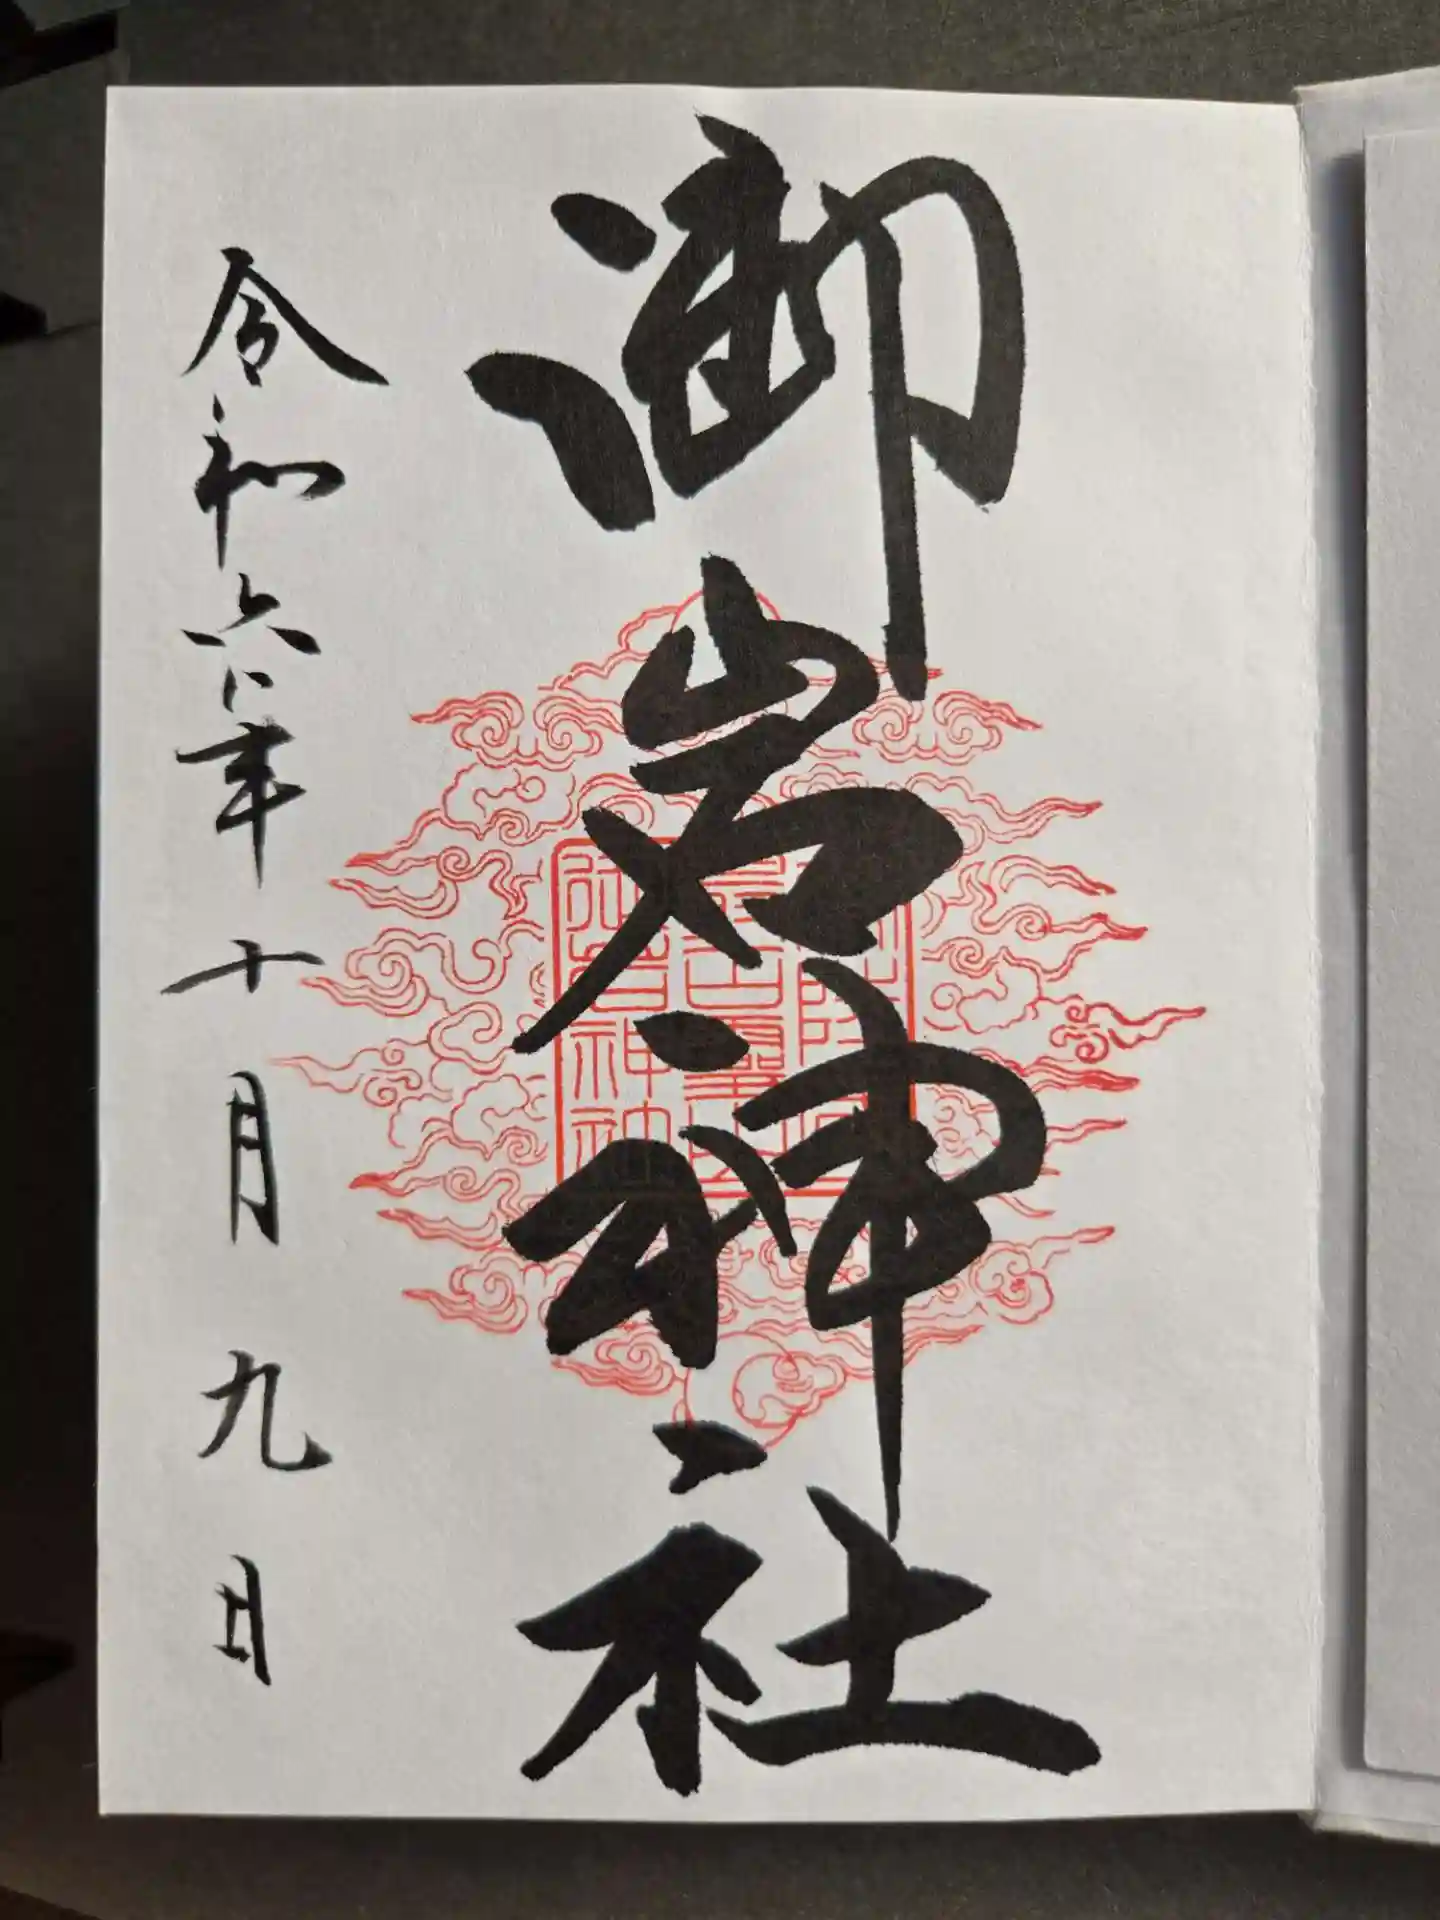 御岩神社
令和六年十月九日